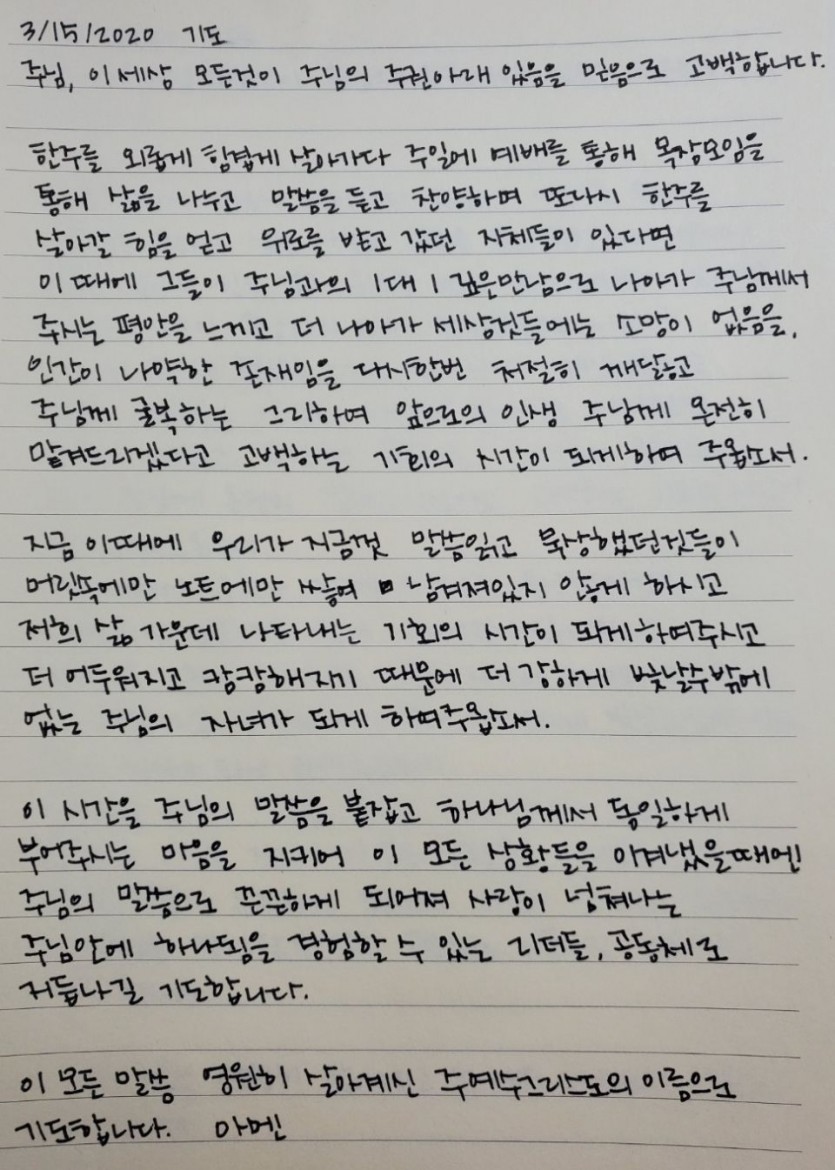 3/15/2020 기도
주님, 이 세상 모든것이 주님의 주권아래 있음을 믿음으로 고백합니다.
한주를 외롭게 힘겹게 살아가다 주일에 예배를 통해 목장모임을
통해 삶을 나누고 말씀을 듣고 찬양하며 또다시 한주를
살아갈 힘을 얻고 위로를 받고 갔던 지체들이 있다면
이 때에 그들이 주님과의 1대 1 깊은만남으로 나아가 주님께서
주시는 평안을 느끼고 더 나아가 세상것들에는 소망이 없음을,
인간이 나약한 존재임을 다시한번 처절히 깨닫고
주님께 굴복하는 그리하여 앞으로의 인생 주님께 온전히
맡겨드리겠다고 고백하는 기회의 시간이 되게하여 주옵소서.
지금 이때에 우리가 지금껏 말씀읽고 묵상했던것들이
머릿속에만 노트에만 쌓여 남겨져있지 않게 하시고
저희 삶 가운데 나타내는 기회의 시간이 되게하여주시고
더 어두워지고 캄캄해지기 때문에 더 강하게 빛날수밖에
없는 주님의 자녀가 되게 하여주옵소서.
이 시간을 주님의 말씀을 붙잡고 하나님께서 동일하게
부어주시는 마음을 지키어 이 모든 상황들을 이겨냈을때엔
주님의 말씀으로 끈끈하게 되어져 사랑이 넘쳐나는
주님안에 하나됨을 경험할 수 있는 리더들, 공동체로
거듭나길 기도합니다.
이 모든 말씀 영원히 살아계신 주예수그리스도의 이름으로
기도합니다. 아멘